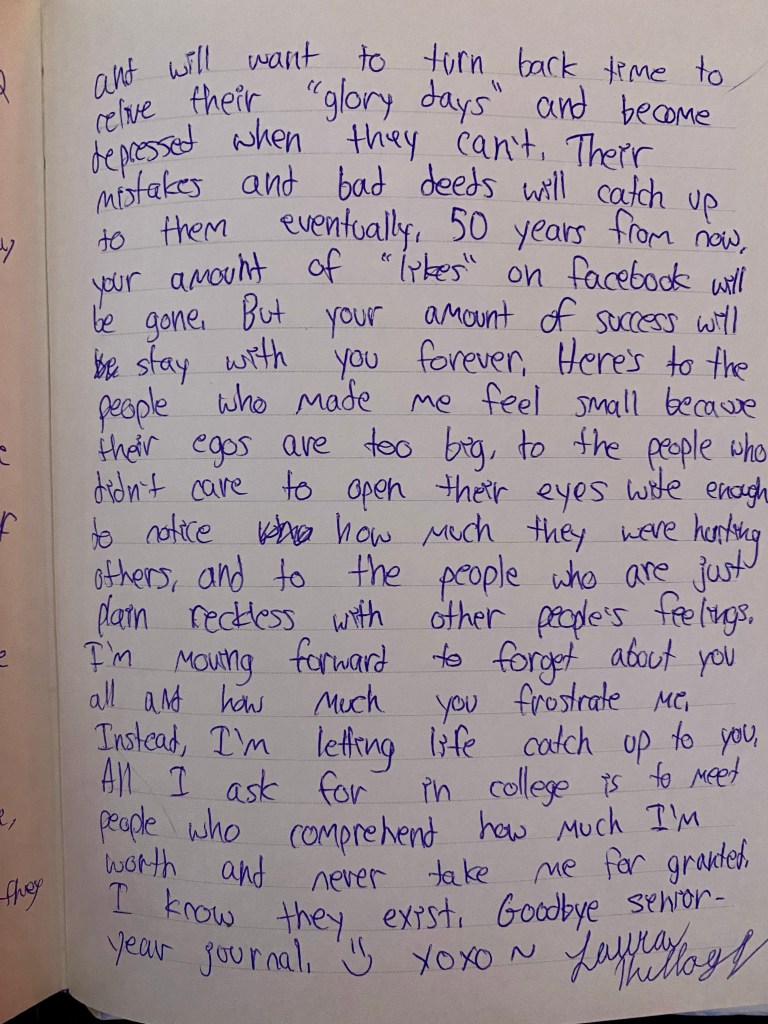 and will want to turn back time to
relive their "glory days" and become
depressed when they can't. Their
mistakes and bad deeds will catch up
to them eventually. 50 years from now,
your amount of "likes" on facebook will
be gone. But your amount of success will
stay with you forever. Here's to the
people who made me feel small because
their egos are too big, to the people who
didn't care to open their eyes wide enough
to notice how much they were hurting
others, and to the people who are just
plain reckless with other people's feelings.
I'm moving forward to forget about you
all and how much you frustrate me.
Instead, I'm letting life catch up to you.
All I ask for in college is to meet
people who comprehend how much I'm
worth and never take me for granted.
I know they exist. Goodbye senior-
year journal. :) xoxo ~ Laura
they